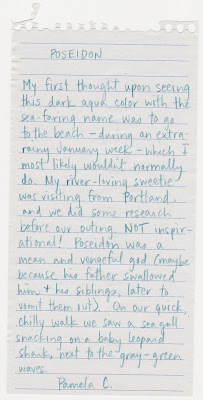 POSEIDON
My first thought upon seeing
this dark aqua color with the
sea-faring name was to go
to the beach – during an extra-
rainy January week – which I
most likely wouldn't normally
do. My river-loving sweetie
was visiting from Portland,
and we did some research
before our outing. NOT inspir-
ational! Poseidon was a
mean and vengeful god (maybe
because his father swallowed
him + his siblings, later to
vomit them out). On our quick,
chilly walk we saw a sea gull
snacking on a baby leopard
shark, next to the gray-green
waves.
Pamela C.